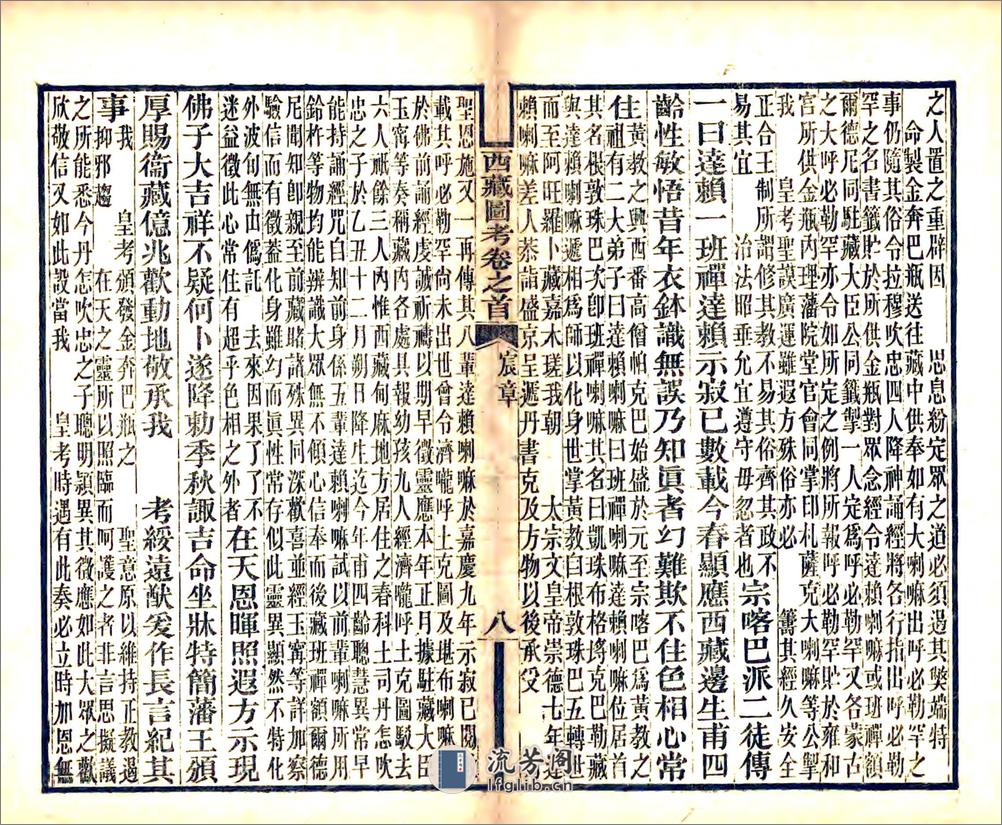 之人置之重辟因　恩息紛定眾之道必須過其獘端特
命製金奔巴瓶送往藏中供奉如有大喇嘛出呼必勒罕之
事仍隨其俗令拉穆吹忠四人降神誦經將各行指出呼必勒
罕之名書籤貯於所供金瓶對眾念經令達賴喇嘛或班禪額
爾德尼同駐藏大臣公同籤掣一人定爲呼必勒罕又各蒙古
之大呼必勒罕亦令如所定之例將所報呼必勒罕貯於雍和
宮所供金瓶內理藩院堂官會同掌印札薩克大喇嘛等公掣
我　皇考聖謨廣運雖遐方殊俗亦必　籌其經久安全
正合王制所謂修其教不易其俗齊其政不
易其宜　治法昭垂允宜遵守毋忽者也
宗喀巴派二徒傳
一曰達賴一班禪達賴示寂已數載今春顯應西藏邊生甫四
齡性敏悟昔年衣鉢識無誤乃知眞者幻難欺不住色相心常
住
黃教之興西番高僧帕克巴始盛於元至宗喀巴爲黃教之
祖有二大弟子曰達賴喇嘛曰班禪喇嘛達賴喇嘛位居首
其名根敦珠巴次卽班禪喇嘛其名曰凱珠布格埒克巴勒藏
與達賴喇嘛遞相爲師以化身世掌黃教曰根敦珠巴五轉世
而至阿旺羅卜藏嘉木瑳我朝　太宗文皇帝崇德七年達
賴喇嘛差人恭詣盛京呈遞丹書克及方物以後承受
西藏圖考卷之首　宸章　八
聖恩施又一再傳其八輩達賴喇嘛於嘉慶九年示寂已閱
載其呼必勒罕尚未出世曾令濟嚨呼土克圖及堪布喇嘛
於佛前誦經虔誠祈禱以期早徵靈應本年正月據駐藏大臣
玉寗等奏稱藏內各處具報幼孩九人經濟嚨呼土克圖駁去
六人祇餘三人內惟西藏甸麻地方居住之春科土司丹怎吹
忠之子於乙丑十二月朔日降生迄今年甫四齡聰慧異常早
能持誦經咒自知前身係五輩達賴喇嘛試以前輩喇嘛所用
鈴杵等物均能辨識大眾無不傾心信奉而後藏班禪額爾德
尼聞知卽親至前藏賭諸殊異同深歡喜並經玉寗等詳加察
驗信而有徵蓋化身雖幻而眞性常存似此靈異顯然不特化
外波旬無由僞託　去來因果了了不
迷益徵此心常住有超乎色相之外者
在天恩暉照遐方示現
佛子大吉祥不疑何卜遂降勅季秋諏吉命坐牀特簡藩王頒
厚賜衞藏億兆歡動地敬承我　考綏遠猷爰作長言紀其
事
我　皇考頒發金奔巴瓶之　聖意原以維持正教遏
抑邪趨　在天之靈所以照臨而呵護之者非言思擬議
之所能悉今丹怎吹忠之子聰明穎異其徵應如此大眾之歡
欣敬信又如此設當我　皇考時遇有此奏必立時加恩無
流芳閣
lfglib.cn